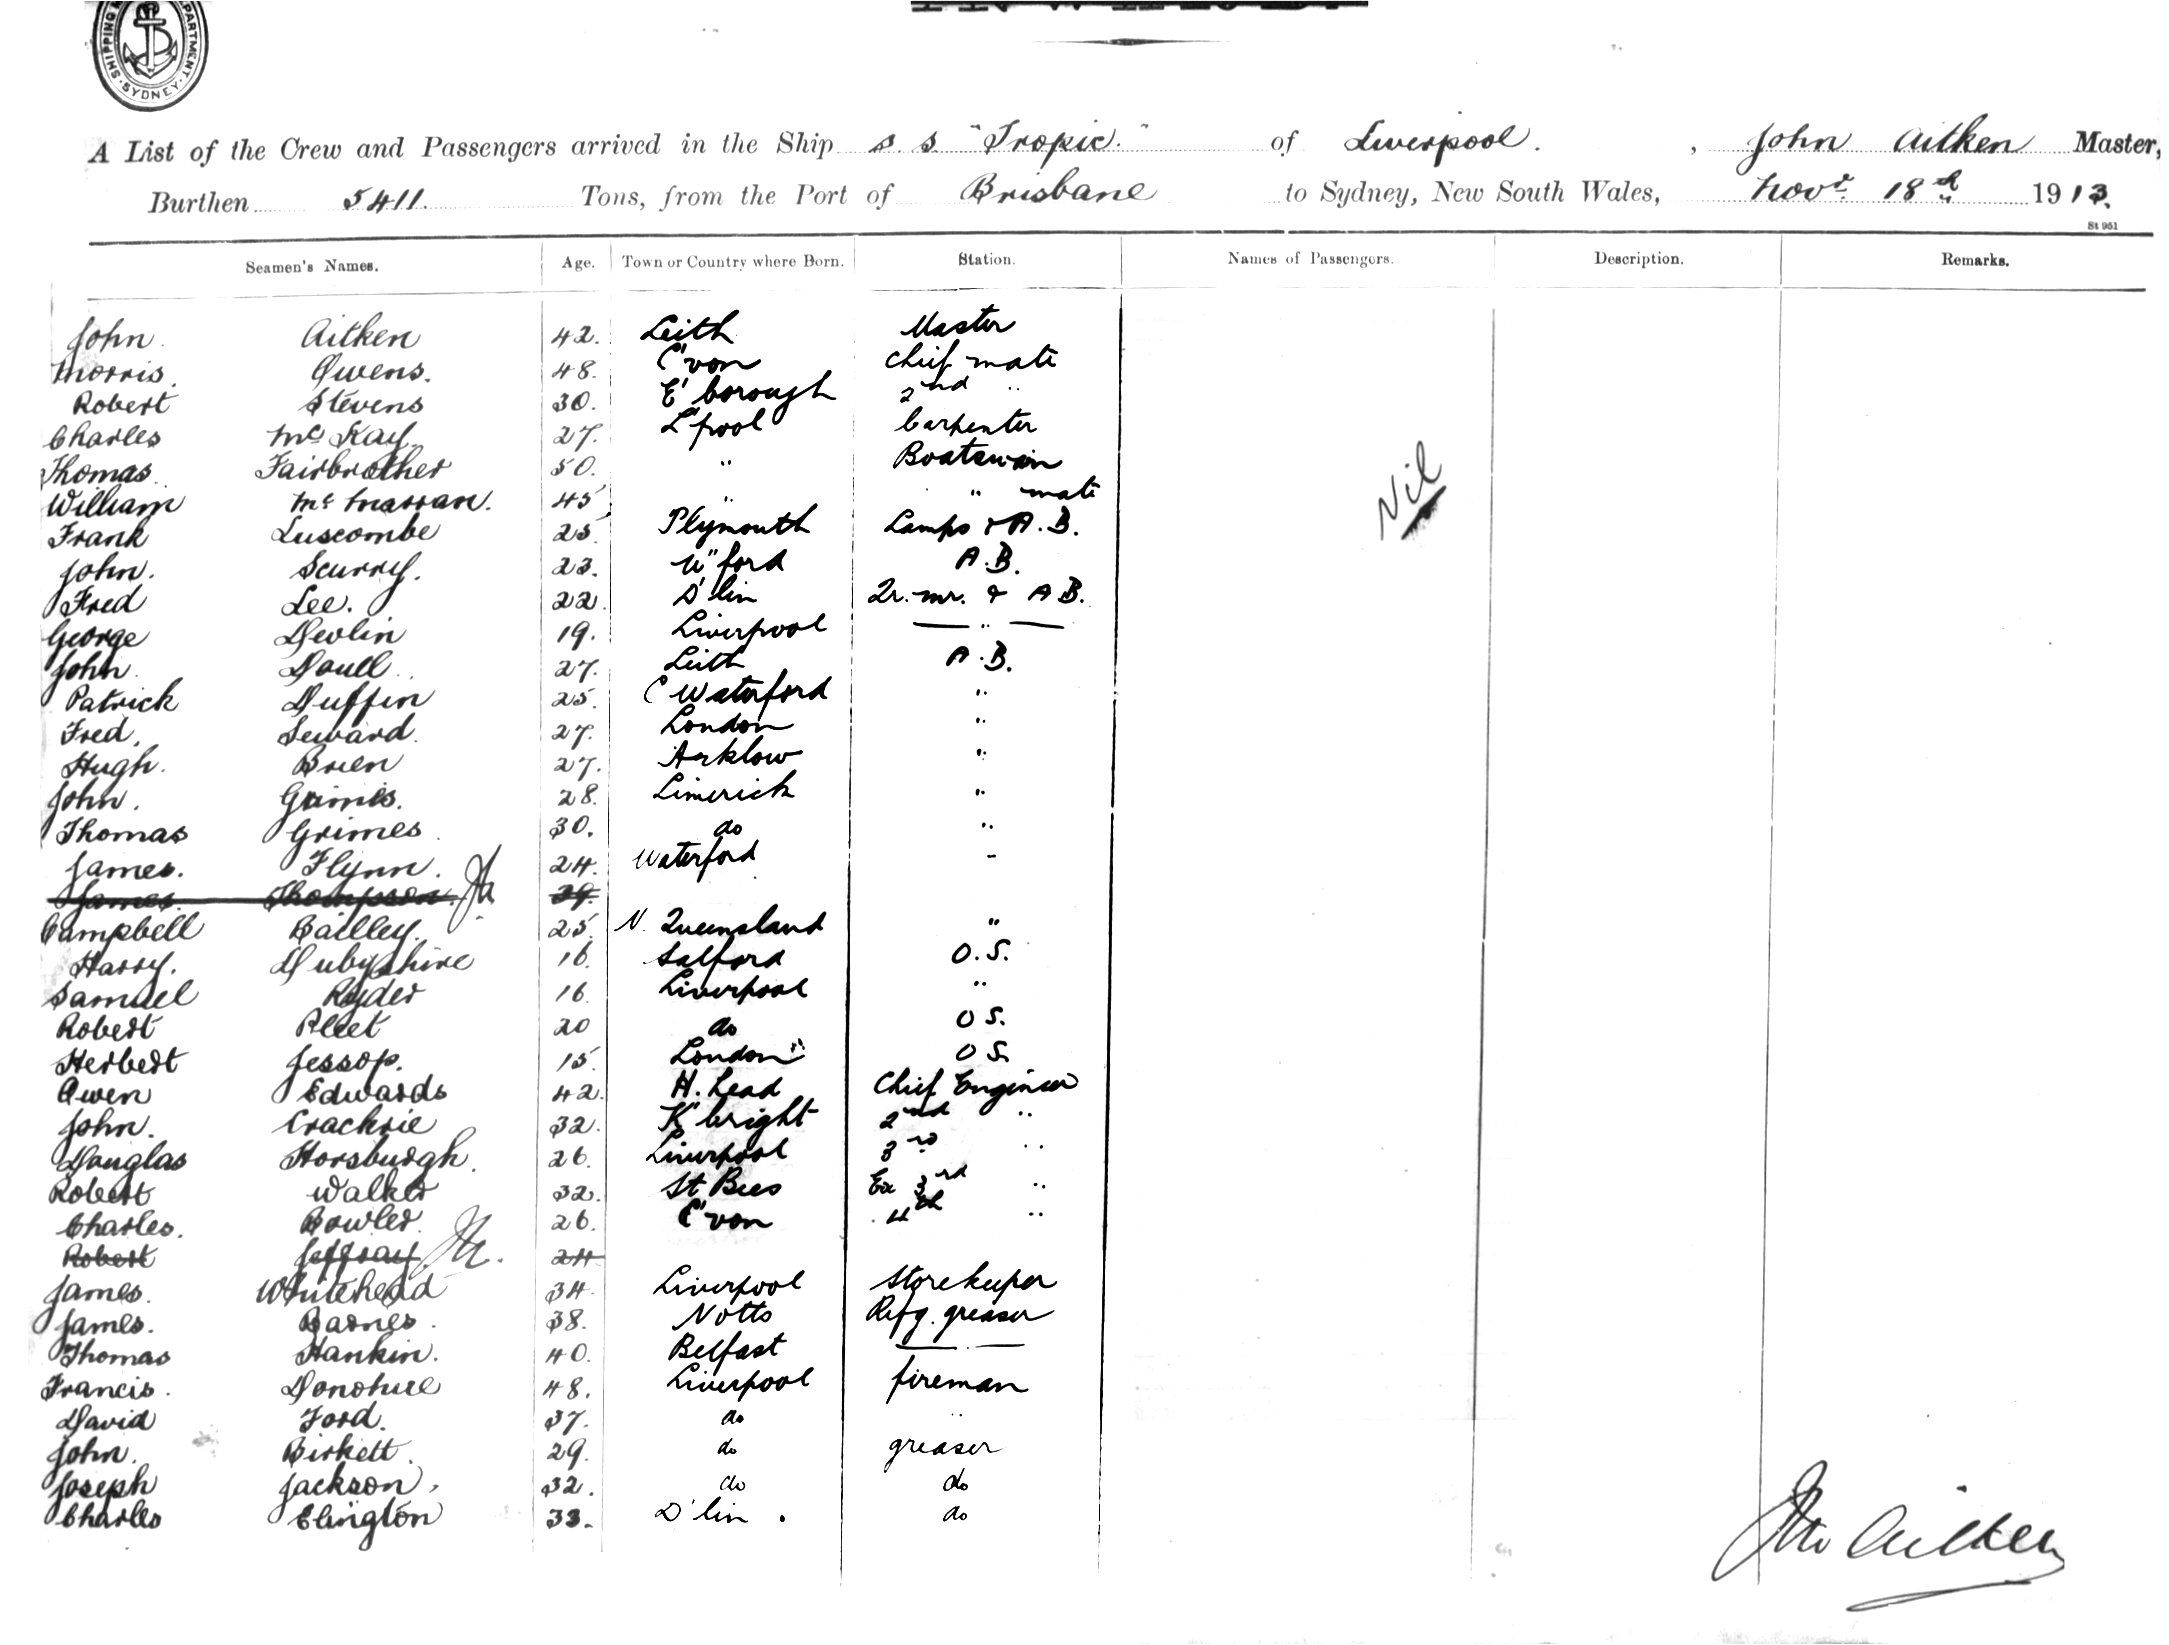 SHIPPING DEPARTMENT SYDNEY
A List of the Crew and Passengers arrived in the Ship s.s. "Tropic." of Liverpool. , John Aitken Master,
Burthen 5411. Tons, from the Port of Brisbane to Sydney, New South Wales, Novr. 18th 1913.
St 951
Seamen's Names. Age. Town or Country where Born. Station. Names of Passengers. Description. Remarks.
John Aitken 42. Leith Master
Morris Owens. 48. C'von Chief mate
Robert Stevens 30. E'borough 2nd "
Charles McKay 27. L'pool Carpenter
Thomas Fairbrother 50. " Boatswain
William Mc 45 " " mate
Nil
Frank Luscombe 25. Plymouth Lamps & A.B.
John. Scurry. 23. W"ford A.B.
Fred Lee. 22. D'lin Qr. mr. & AB.
George Devlin 19. Liverpool — " —
John 27. Leith A.B.
Patrick Duffin 25. C Waterford "
Fred. Seward. 27. London "
Hugh. Brien 27. Arklow "
John. Grimes. 28. Limerick "
Thomas Grimes 30. do "
James. Flynn. 24. Waterford "
James. Thompson. JA 39.
Campbell Bailley. 25. N. Queensland "
Harry. 16. Salford O.S.
Samuel Ryder 16. Liverpool "
Robert Pleet 20 do O S.
Herbert Jessop. 15. London O S.
Owen Edwards 42. H. head Chief Engineer
John. Crackrie 32. K'bright 2nd "
Douglas Horsburgh. 26. Liverpool 3rd "
Robert Walker 32. St Bees Ex 3rd "
Charles. Bowler. 26. C'von 4th "
Robert Jeffray JA. 24
James. Whitehead 34. Liverpool Storekeeper
James. Barnes. 38. Notts Refg. greaser
Thomas Hankin. 40. Belfast — " —
Francis. Donohue 48. Liverpool fireman
David Ford. 37. do "
John. Birkett. 29. do greaser
Joseph Jackson. 32. do do
Charles Elington 33. D'lin. do
Jno Aitken